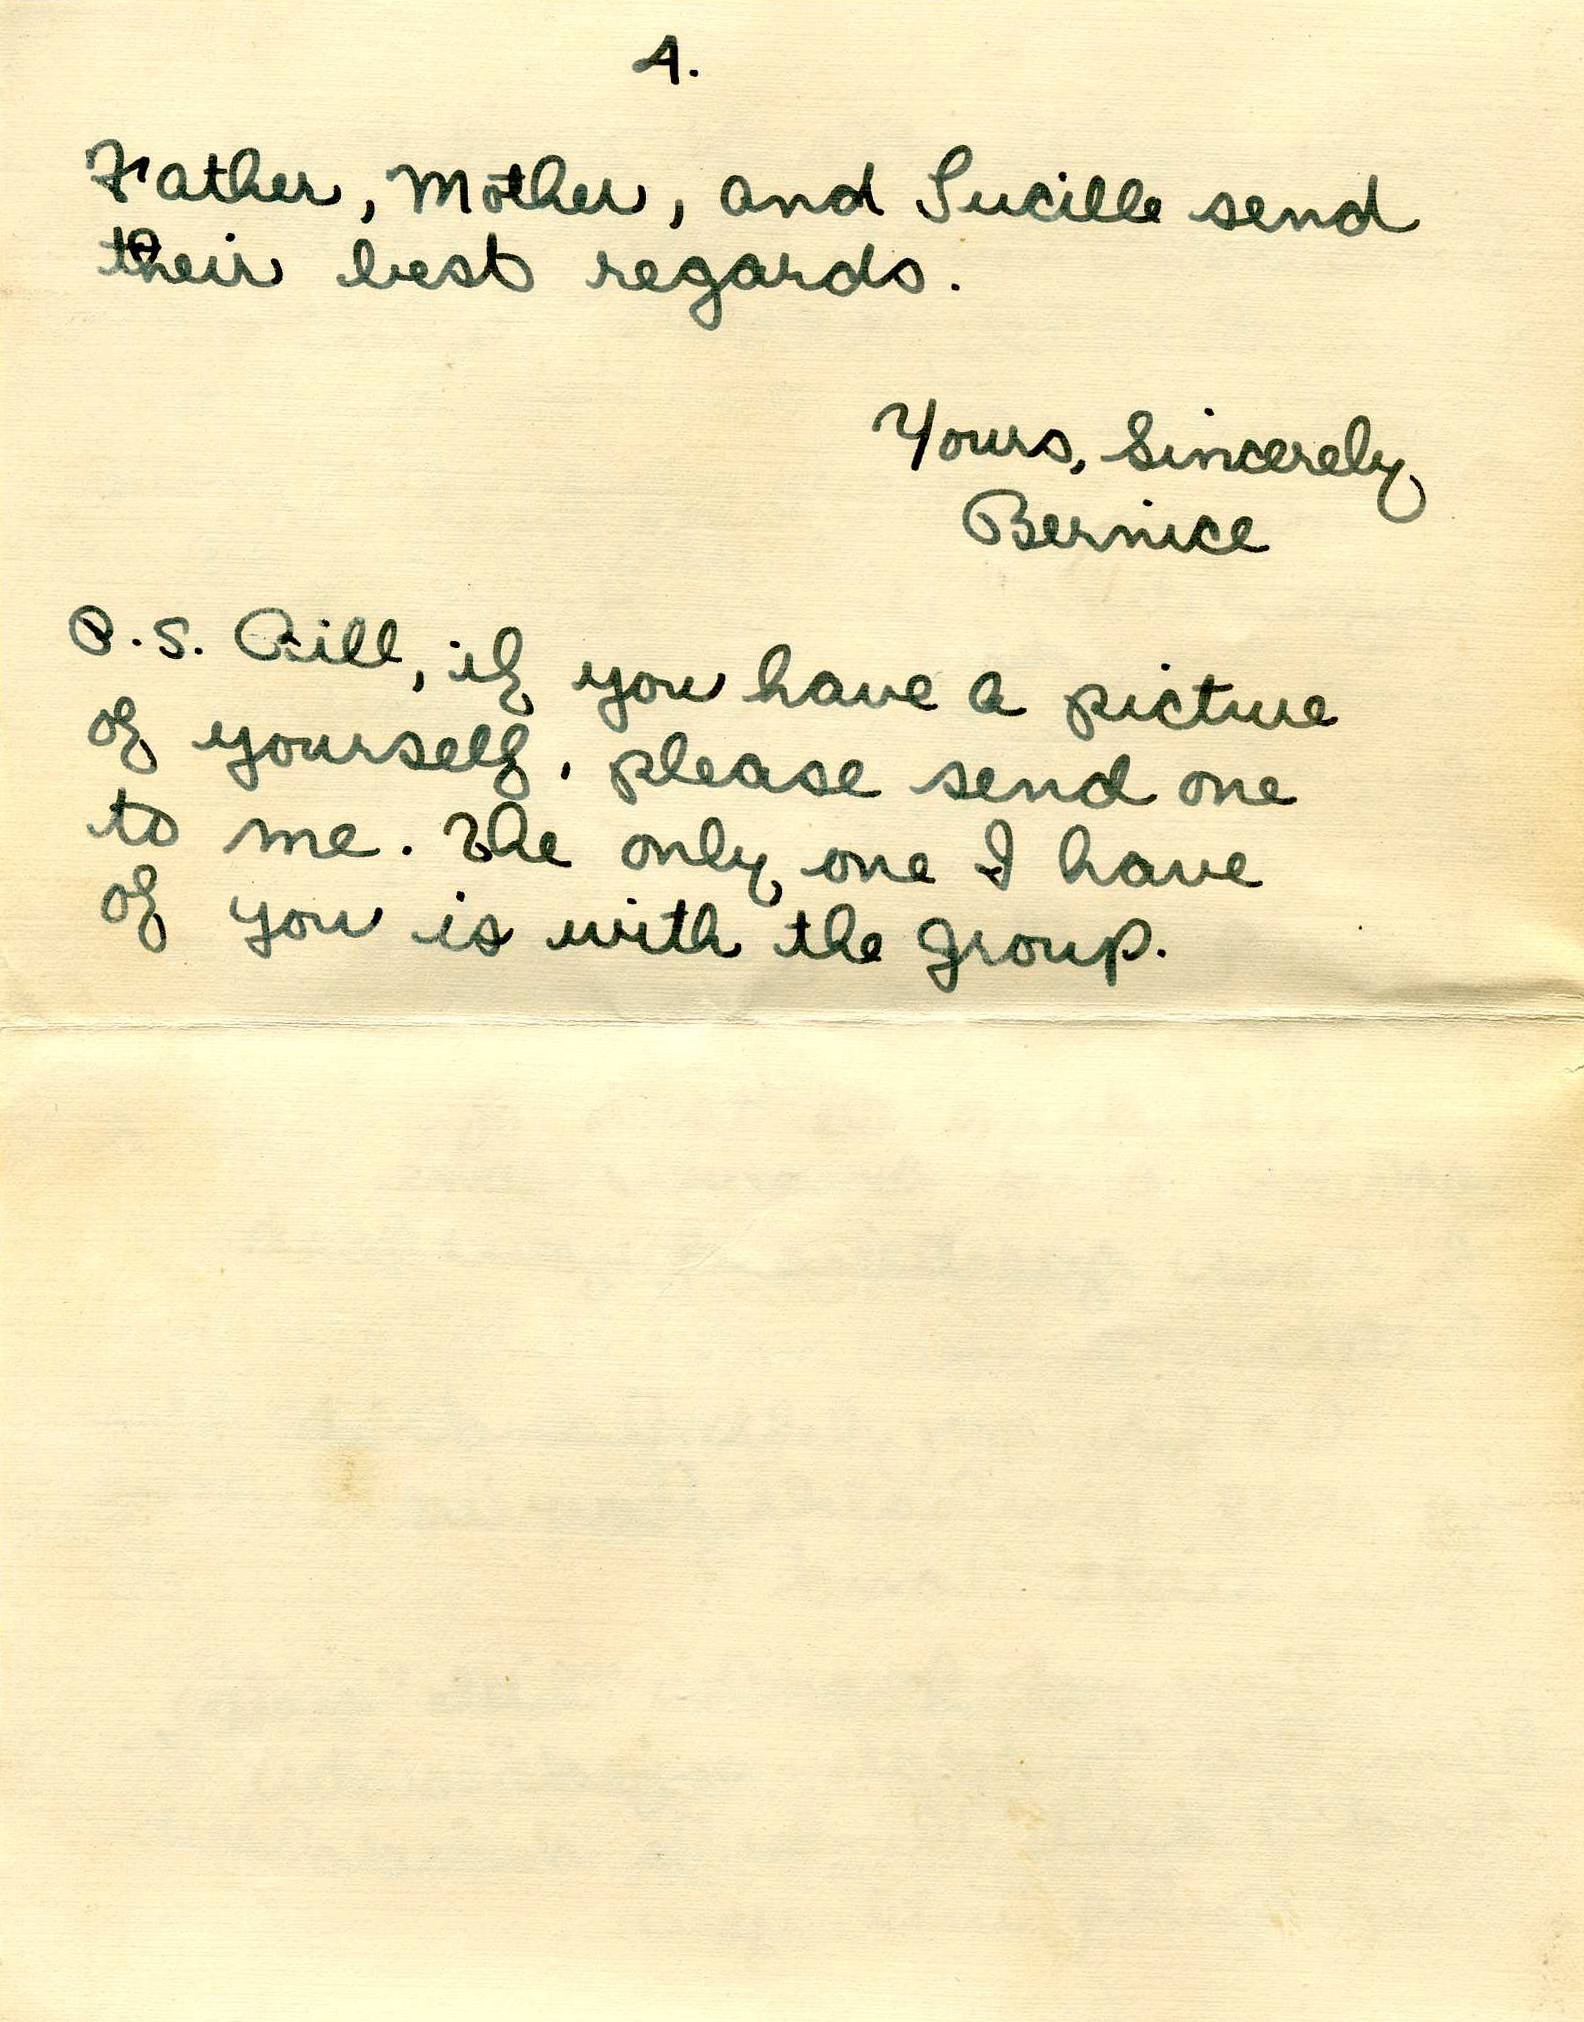 4.
Father, Mother, and Lucille send
their best regards.
Yours, Sincerely
Bernice
P.S. Bill, if you have a picture
of yourself, please send one
to me. The only one I have
of you is with the group.